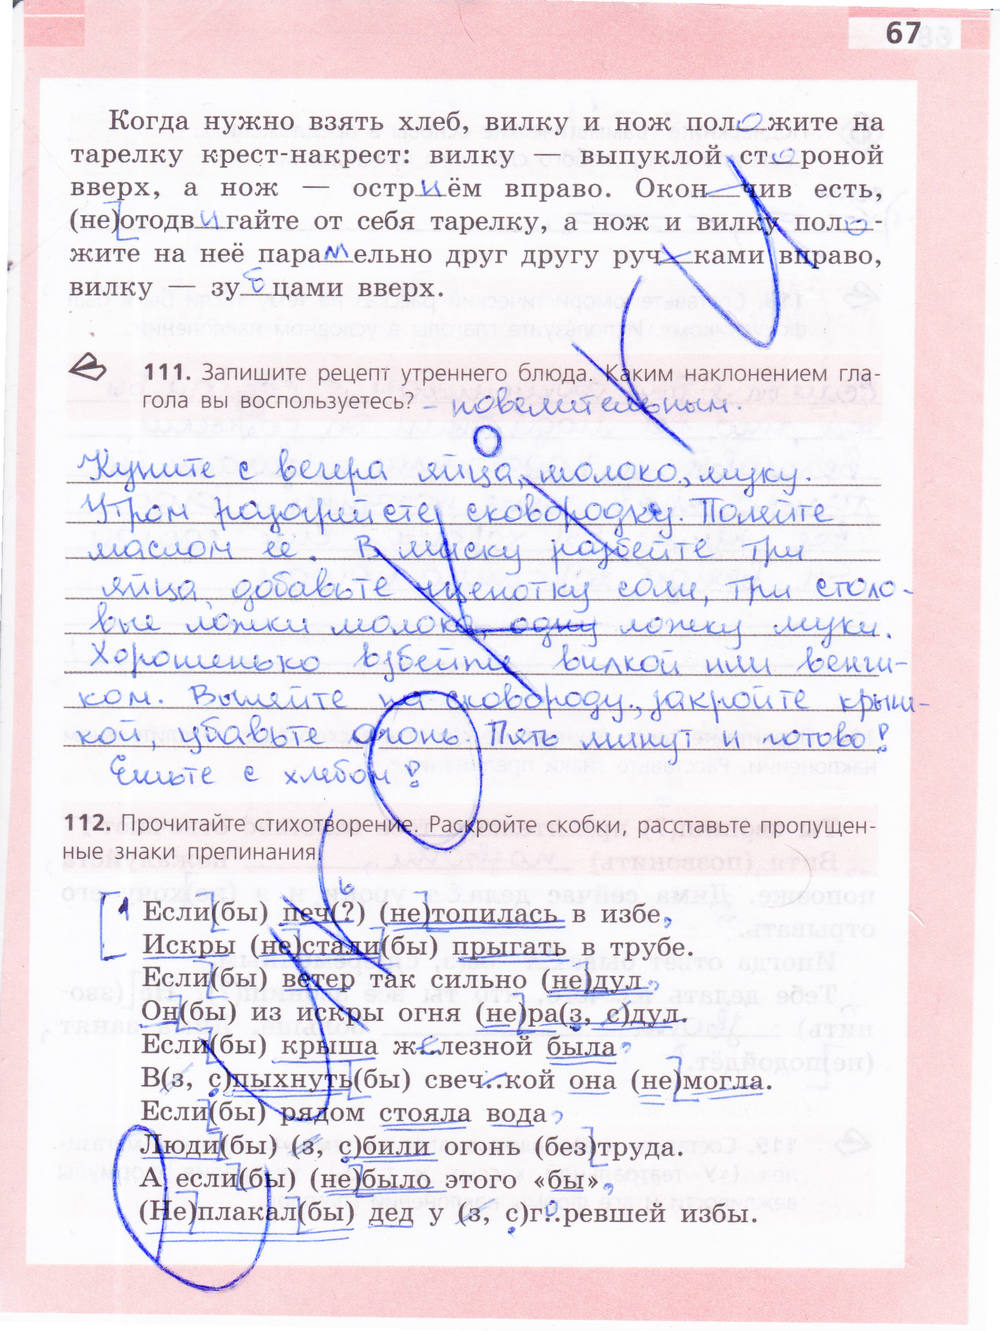 67
Когда нужно взять хлеб, вилку и нож положите на
тарелку крест-накрест: вилку — выпуклой стороной
вверх, а нож — остриём вправо. Окон_чив есть,
(не)отодвигайте от себя тарелку, а нож и вилку поло-
жите на неё пара_ельно друг другу руч_ками вправо,
вилку — зубцами вверх.
111. Запишите рецепт утреннего блюда. Каким наклонением гла-
гола вы воспользуетесь? - повелительным.
Купите с вечера яйца, молоко, муку.
Утром разогрейте сковородку. Полейте
маслом её. В миску разбейте три
яйца, добавьте щепотку соли, три столо-
вые ложки молока, одну ложку муки.
Хорошенько взбейте вилкой или венчи-
ком. Вылейте на сковороду, закройте крыш-
кой, убавьте огонь. Пять минут и готово!
Ешьте с хлебом!
112. Прочитайте стихотворение. Раскройте скобки, расставьте пропущен-
ные знаки препинания.
Если(бы) печ(?)ь (не)топилась в избе,
Искры (не)стали(бы) прыгать в трубе.
Если(бы) ветер так сильно (не)дул,
Он(бы) из искры огня (не)ра(з, с)дул.
Если(бы) крыша железной была,
В(з, с)пыхнуть(бы) свеч..кой она (не)могла.
Если(бы) рядом стояла вода,
Люди(бы) (з, с)били огонь (без)труда.
А если(бы) (не)было этого «бы»,
(Не)плакал(бы) дед у (з, с)г..ревшей избы.